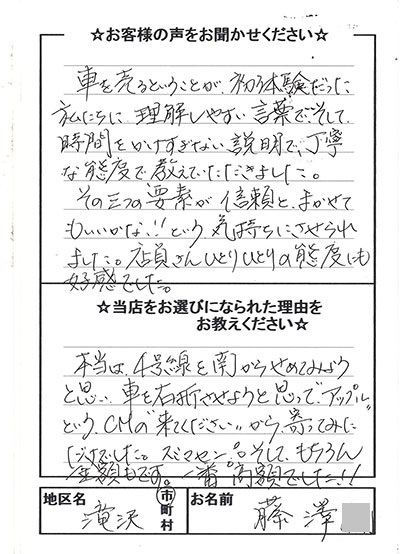 ☆お客様の声をお聞かせください☆
車を売るということが、初体験だった
私たちに、理解しやすい言葉で、そして
時間をかけすぎない説明で、丁寧
な態度で教えていただきました。
その三つの要素が信頼と、まかせて
もいいかな!!という気持ちにさせられ
ました。店員さんひとりひとりの態度にも
好感でした。
☆当店をお選びになられた理由を
お教えください☆
本当は、4号線を南からせめてみよう
と思い、車を右折させようと思って、アップル
という、CMの"来てください"から、寄ってみた
だけでした。スミマセン。そして、もちろん
金額もです。一番、高額でした!!
地区名
滝沢
市町村
お名前
藤澤